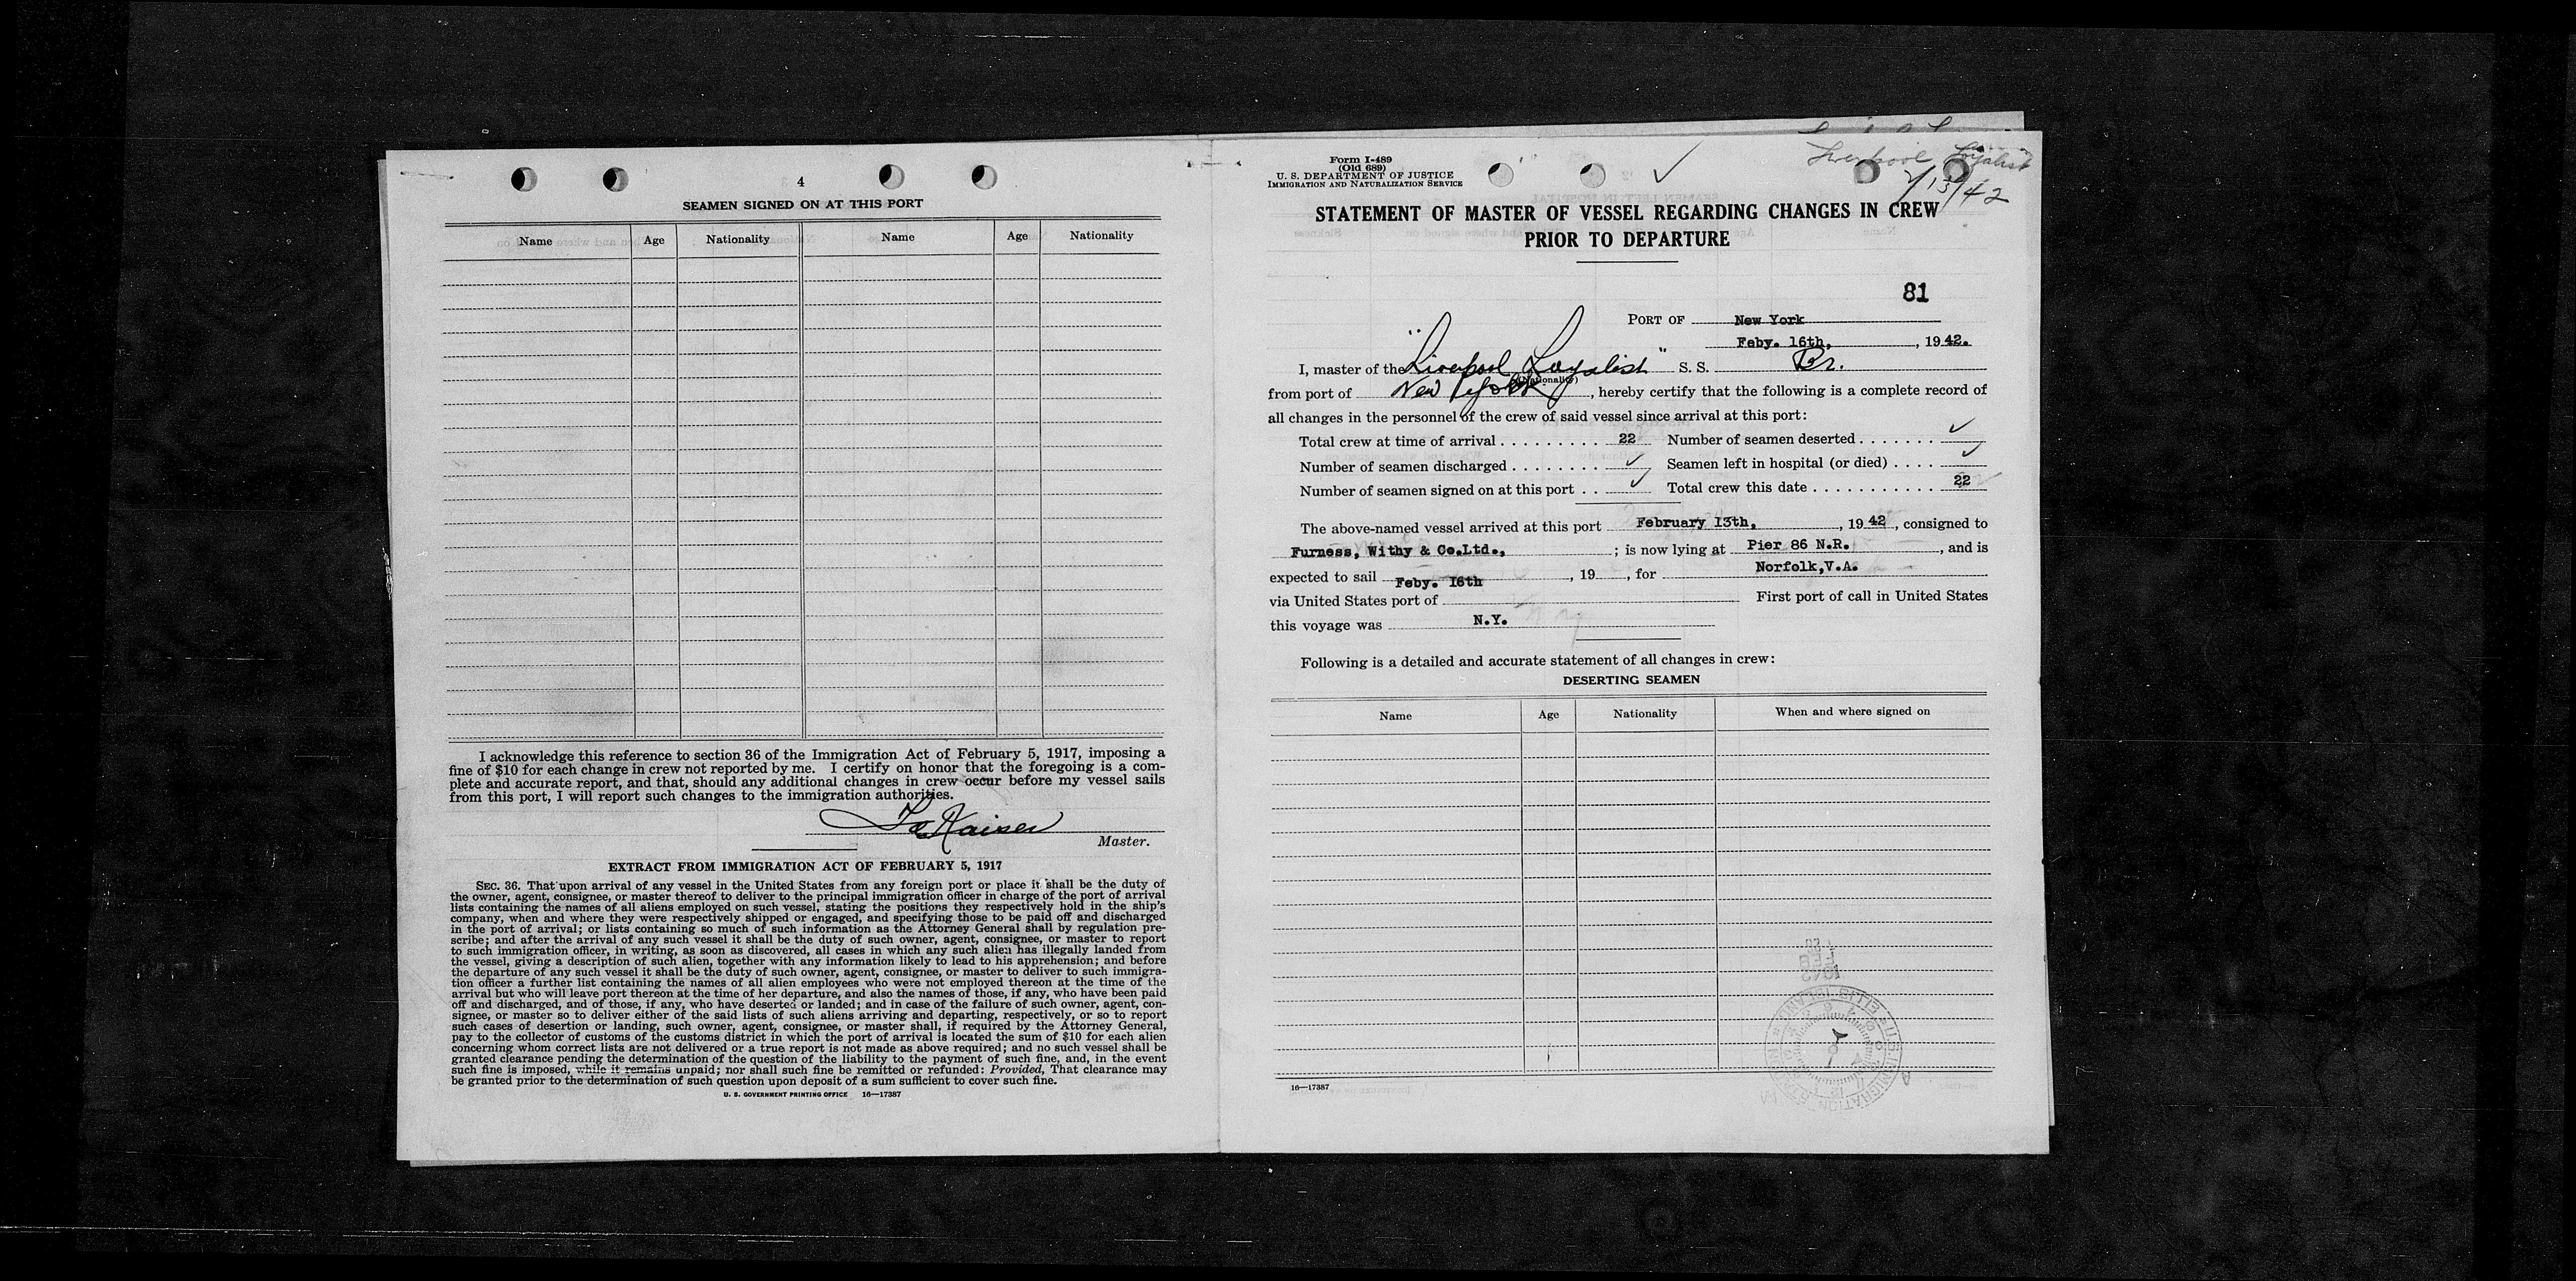 4
SEAMEN SIGNED ON AT THIS PORT
Name Age Nationality Name Age Nationality
I acknowledge this reference to section 36 of the Immigration Act of February 5, 1917, imposing a
fine of $10 for each change in crew not reported by me. I certify on honor that the foregoing is a com-
plete and accurate report, and that, should any additional changes in crew occur before my vessel sails
from this port, I will report such changes to the immigration authorities.
Master.
EXTRACT FROM IMMIGRATION ACT OF FEBRUARY 5, 1917
SEC. 36. That upon arrival of any vessel in the United States from any foreign port or place it shall be the duty of
the owner, agent, consignee, or master thereof to deliver to the principal immigration officer in charge of the port of arrival
lists containing the names of all aliens employed on such vessel, stating the positions they respectively hold in the ship's
company, when and where they were respectively shipped or engaged, and specifying those to be paid off and discharged
in the port of arrival; or lists containing so much of such information as the Attorney General shall by regulation pre-
scribe; and after the arrival of any such vessel it shall be the duty of such owner, agent, consignee, or master to report
to such immigration officer, in writing, as soon as discovered, all cases in which any such alien has illegally landed from
the vessel, giving a description of such alien, together with any information likely to lead to his apprehension; and before
the departure of any such vessel it shall be the duty of such owner, agent, consignee, or master to deliver to such immigra-
tion officer a further list containing the names of all alien employees who were not employed thereon at the time of the
arrival but who will leave port thereon at the time of her departure, and also the names of those, if any, who have been paid
off and discharged, and of those, if any, who have deserted or landed; and in case of the failure of such owner, agent, con-
signee, or master so to deliver either of the said lists of such aliens arriving and departing, respectively, or so to report
such cases of desertion or landing, such owner, agent, consignee, or master shall, if required by the Attorney General,
pay to the collector of customs of the customs district in which the port of arrival is located the sum of $10 for each alien
concerning whom correct lists are not delivered or a true report is not made as above required; and no such vessel shall be
granted clearance pending the determination of the question of the liability to the payment of such fine, and, in the event
such fine is imposed, while it remains unpaid; nor shall such fine be remitted or refunded: Provided, That clearance may
be granted prior to the determination of such question upon deposit of a sum sufficient to cover such fine.
U. S. GOVERNMENT PRINTING OFFICE 16—17387
Form I-489
(Old 689)
U. S. DEPARTMENT OF JUSTICE
IMMIGRATION AND NATURALIZATION SERVICE
Liverpool Loyalist
2/13/42
STATEMENT OF MASTER OF VESSEL REGARDING CHANGES IN CREW
PRIOR TO DEPARTURE
81
PORT OF New York
Feby. 16th, , 1942.
I, master of the "Liverpool Loyalist" S. S. Br.
(Nationality)
from port of New York , hereby certify that the following is a complete record of
all changes in the personnel of the crew of said vessel since arrival at this port:
Total crew at time of arrival . . . . . . . . . . 22 Number of seamen deserted . . . . . . . ✓
Number of seamen discharged . . . . . . . . ✓ Seamen left in hospital (or died) . . . . ✓
Number of seamen signed on at this port . . ✓ Total crew this date . . . . . . . . . . . . 22
The above-named vessel arrived at this port February 13th, , 1942 , consigned to
Furness, Withy & Co.Ltd., ; is now lying at Pier 86 N.R. , and is
expected to sail Feby. 16th , 19 , for Norfolk,V.A.
via United States port of First port of call in United States
this voyage was N.Y.
Following is a detailed and accurate statement of all changes in crew:
DESERTING SEAMEN
Name Age Nationality When and where signed on
16—17387